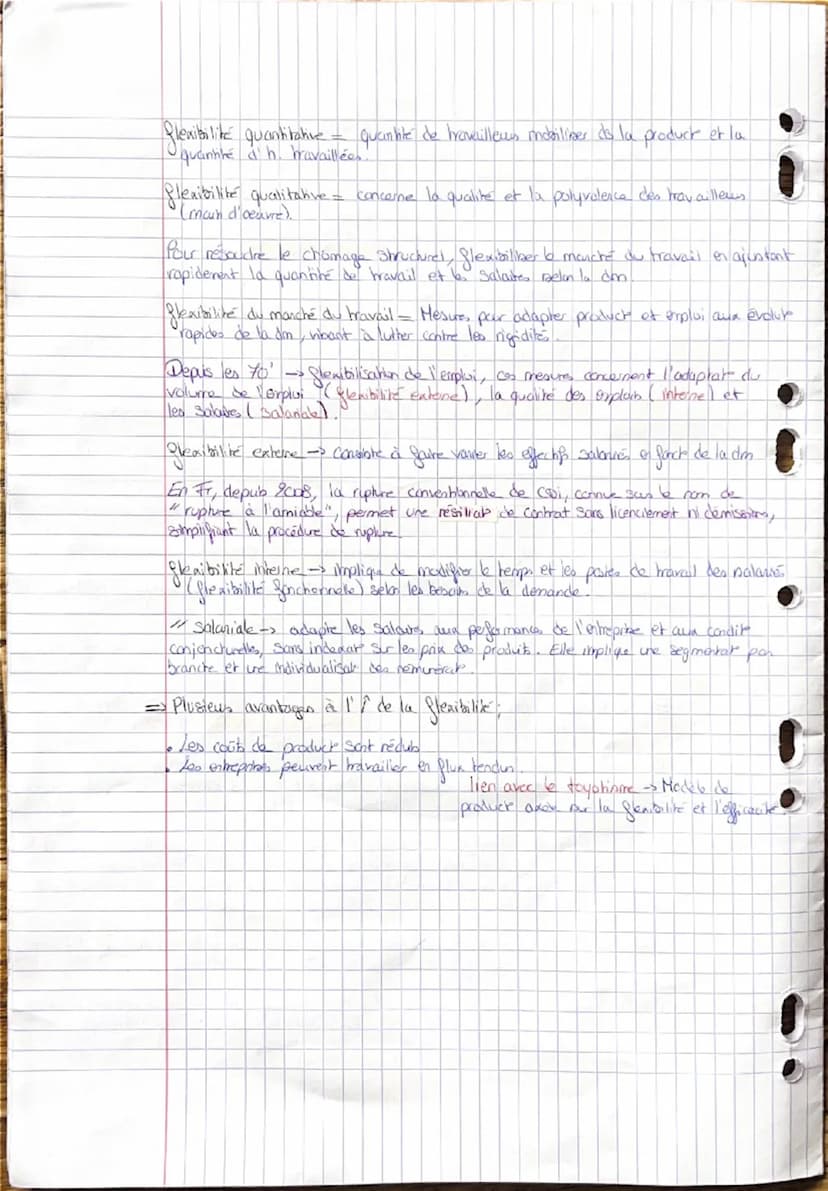 flexibilité quantitative = quantité de travailleurs mobiliser ds la product° et la
quantité d'h. travaillées.
flexibilité qualitative = concerne la qualité et la polyvalence des travailleurs
(main d'oeuvre).
Pour résoudre le chômage structurel, flexibiliser le marché du travail en ajustant
rapidement la quantité de travail et les salaires selon la dm.
flexibilité du marché du travail = Mesures pour adapter product° et emploi aux évolut°
rapides de la dm, visant à lutter contre les rigidités.
Depuis les 70' → flexibilisation de l'emploi, ces mesures concernent l'adaptat° du
volume de l'emploi (flexibilité externe), la qualité des emplois (interne) et
les salaires (salariale).
flexibilité externe → consiste à faire varier les effectifs salariés en fonct° de la dm
En Fr, depuis 2008, la rupture conventionnelle de CDI, connue sous le nom de
"rupture à l'amiable", permet une résiliat° de contrat sans licenciement ni démissions,
simplifiant la procédure de rupture.
flexibilité interne → implique de modifier le temps et les postes de travail des salariés
(flexibilité fonctionnelle) selon les besoins de la demande.
// salariale → adapte les salaires aux performances de l'entreprise et aux condit°
conjoncturelles, sans indexat° sur les prix des produits. Elle implique une segmentat° par
branche et une individualisat° des rémunérat°.
⇒ Plusieurs avantages à l'↑ de la flexibilité ;
• Les coûts de product° sont réduits
• Les entreprises peuvent travailler en flux tendus.
lien avec le toyotisme → Modèle de
product° axée sur la flexibilité et l'efficacité.